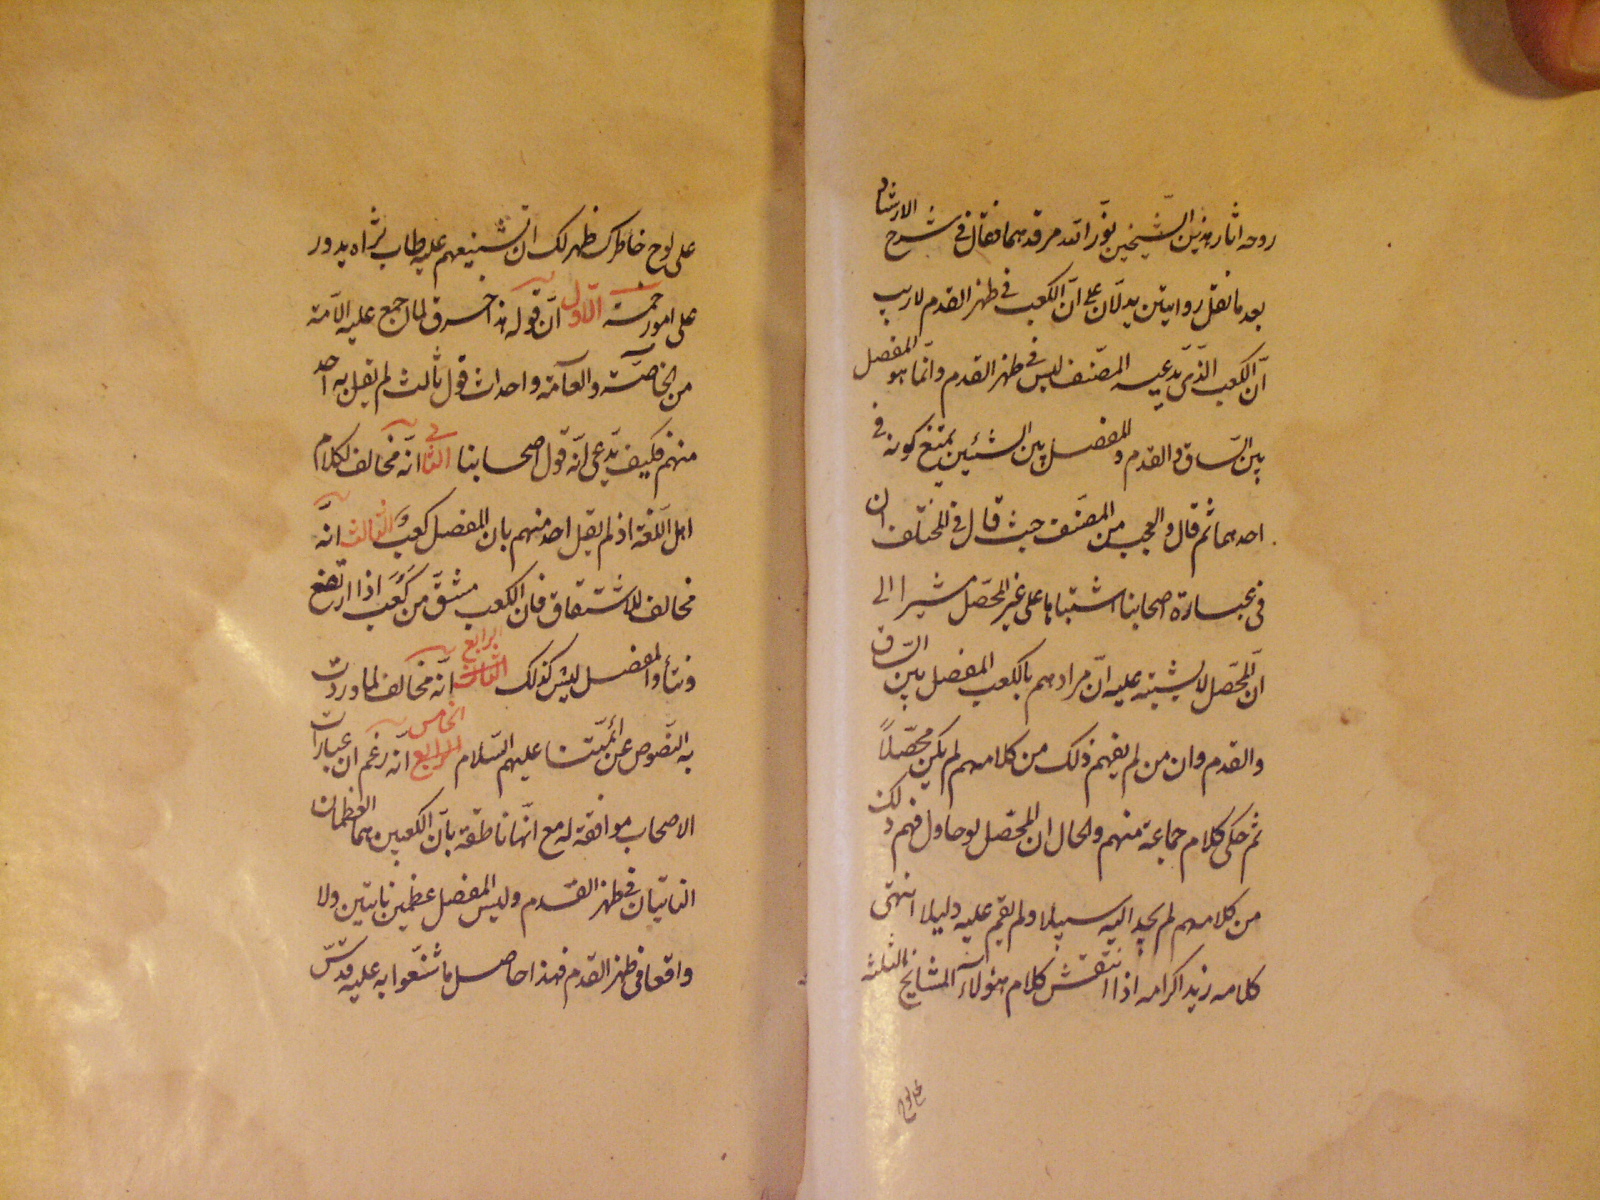 روحه اثار هذين الشيخين نوّر الله مرقدهما فقال في شرح الارشاد
بعد ما نقل روايتين يدلّان على انّ الكعب في ظهر القدم لا ريب
انّ الكعب الذي يدّعيه المصنف ليس في ظهر القدم وانّما هو المفصل
بين السّاق والقدم والمفصل بين الشيئين يمتنع كونه في
احدهما ثم قال والعجب من المصنف حيث قال في المختلف ان
في عبارة اصحابنا اشتباها على غير المحصّل مشيرا الى
ان المحصّل لا يشتبه عليه انّ مرادهم بالكعب المفصل بين السّاق
والقدم وان من لم يفهم ذلك من كلامهم لم يكن محصّلاً
ثم حكى كلام جماعة منهم والحال ان المحصّل لو حاول فهم ذلك
من كلامهم لم يجد اليه سبيلا ولم يقم عليه دليلا انتهى
كلامه زيد اكرامه اذا انتقش كلام هؤلاء المشايخ الثلثة
على لوح
على لوح خاطرك ظهر لك ان تشنيعهم عليه طاب ثراه يدور
على امور خمسة الاوّل انّ قوله هذا خرق لما اجمع عليه الامّة
من الخاصّة والعامّة واحداث قول ثالث لم يقل به احد
منهم فكيف يدّعي انّه قول اصحابنا الثاني انّه مخالف لكلام
اهل اللّغة اذ لم يقل احد منهم بان المفصل كعب الثالث انّه
مخالف للاشتقاق فان الكعب مشتقّ من كَعَبَ اذا ارتفع
ونتأ والمفصل ليس كذلك الثالث الرابع انّه مخالف لما وردت
به النّصوص عن ائمّتنا عليهم السّلام الرابع الخامس انّه زعم ان عبارات
الاصحاب موافقة له مع انّها ناطقة بانّ الكعبين هما العظمان
الناتيان في ظهر القدم وليس المفصل عظمين ناتيين ولا
واقعا في ظهر القدم فهذا حاصل ما شنّعوا به عليه قدّس